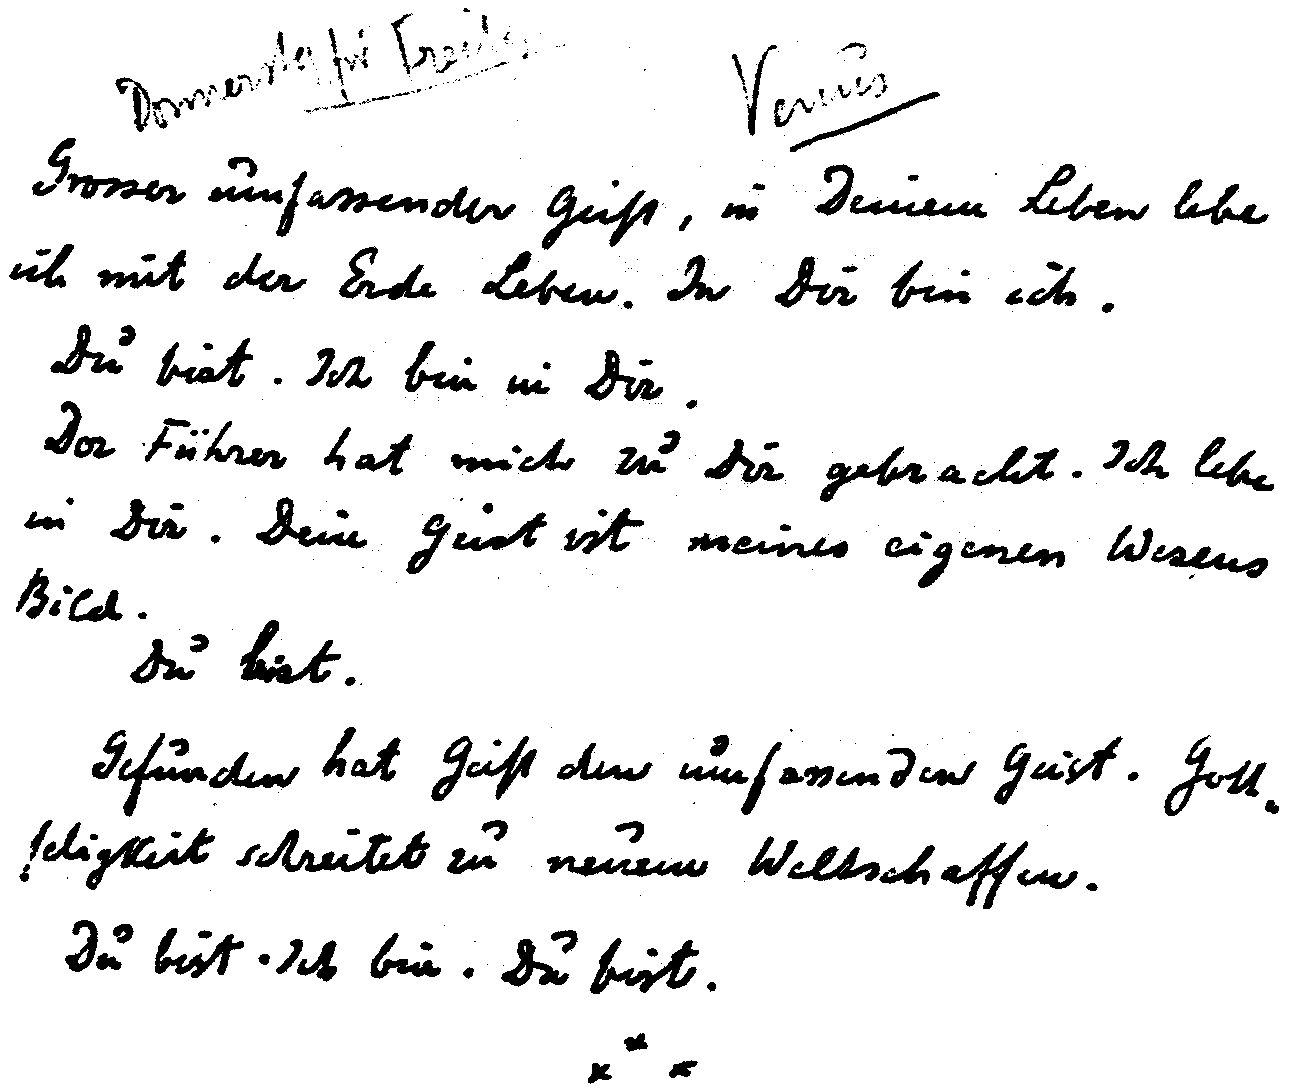 Donnerstag für Freitag Venus
Grosser umfassender Geist, in Deinem Leben lebe
ich mit der Erde Leben. In Dir bin ich.
Du bist. Ich bin in Dir.
Der Führer hat mich zu Dir gebracht. Ich lebe
in Dir. Dein Geist ist meines eigenen Wesens
Bild.
Du bist.
Gefunden hat Geist den umfassenden Geist. Gott-
seligkeit schreitet zu neuem Weltschaffen.
Du bist. Ich bin. Du bist.